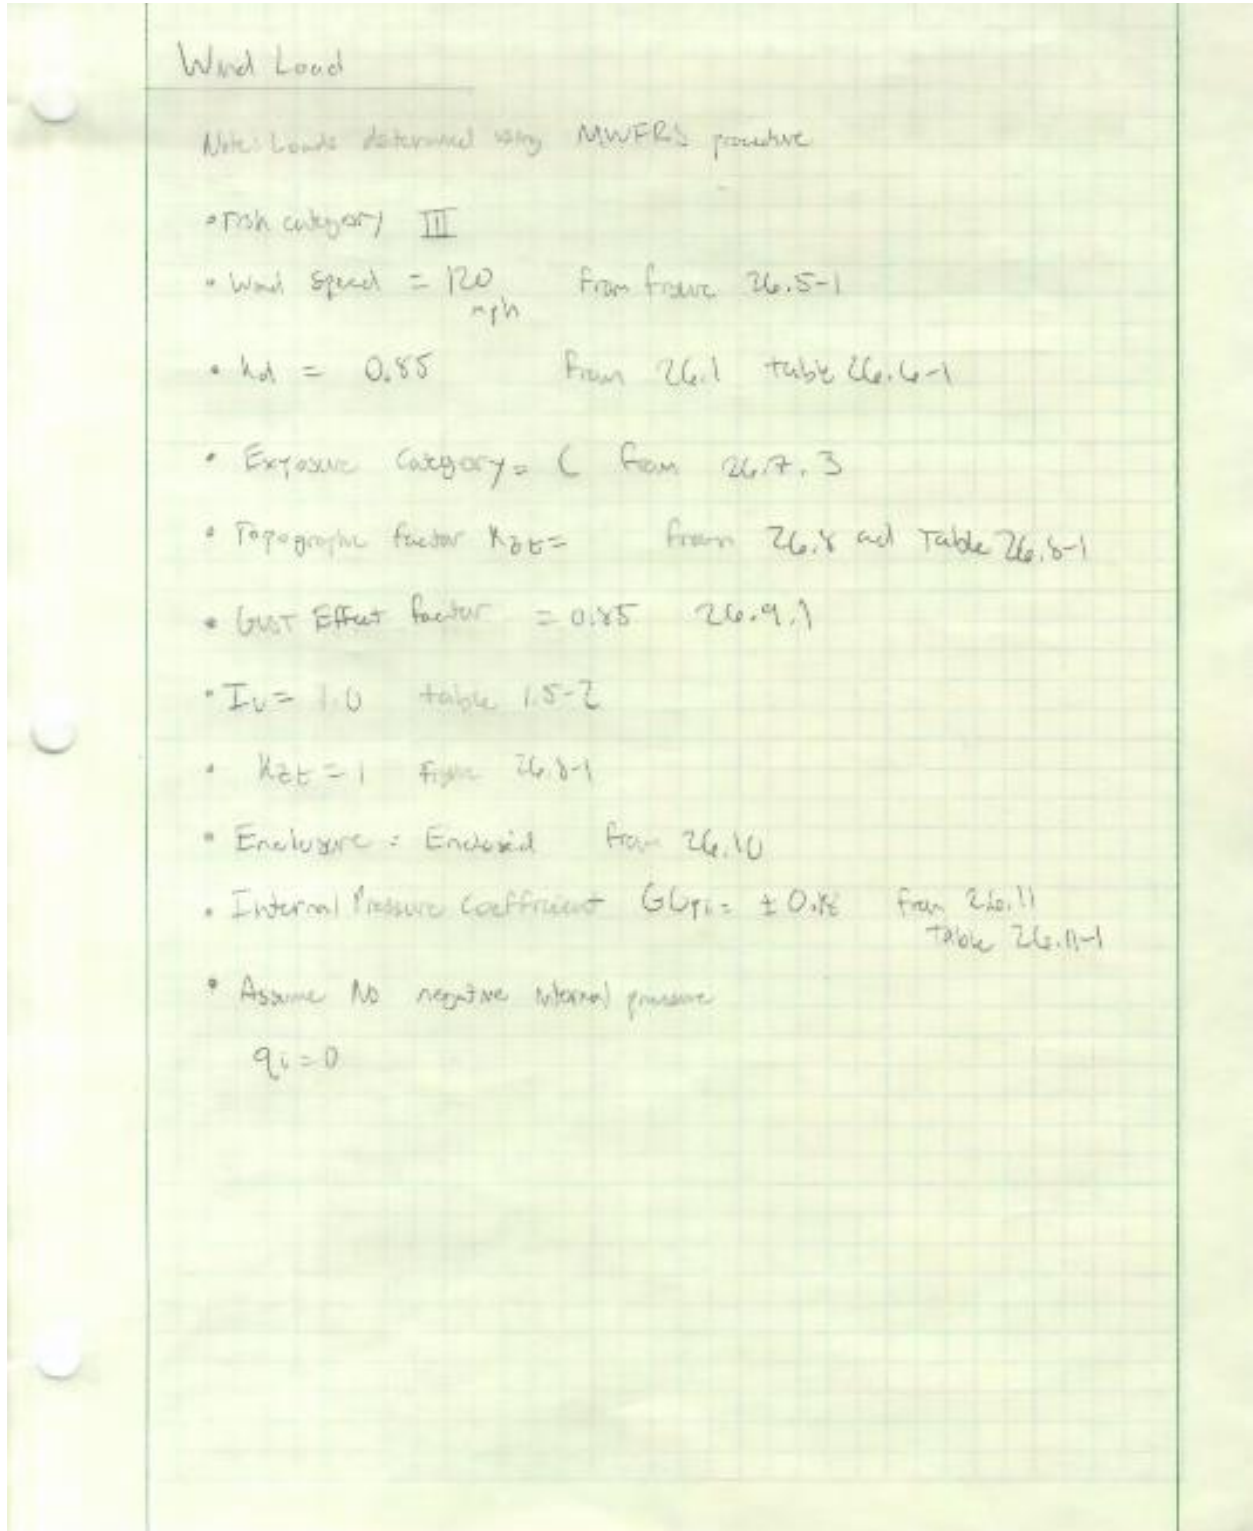 Wind Load
Note: Loads determined using MWFRS procedure
• Risk category III
• Wind Speed = 120 mph from figure 26.5-1
• Kd = 0.85 from 26.1 table 26.6-1
• Exposure Category = C from 26.7.3
• Topographic factor Kzt = from 26.8 and Table 26.8-1
• GUST Effect factor = 0.85 26.9.1
• Iw = 1.0 table 1.5-2
• Kzt = 1 Figure 26.8-1
• Enclosure = Enclosed from 26.10
• Internal Pressure Coefficient GCpi = ± 0.18 from 26.11
table 26.11-1
• Assume No negative internal pressure
qi = 0